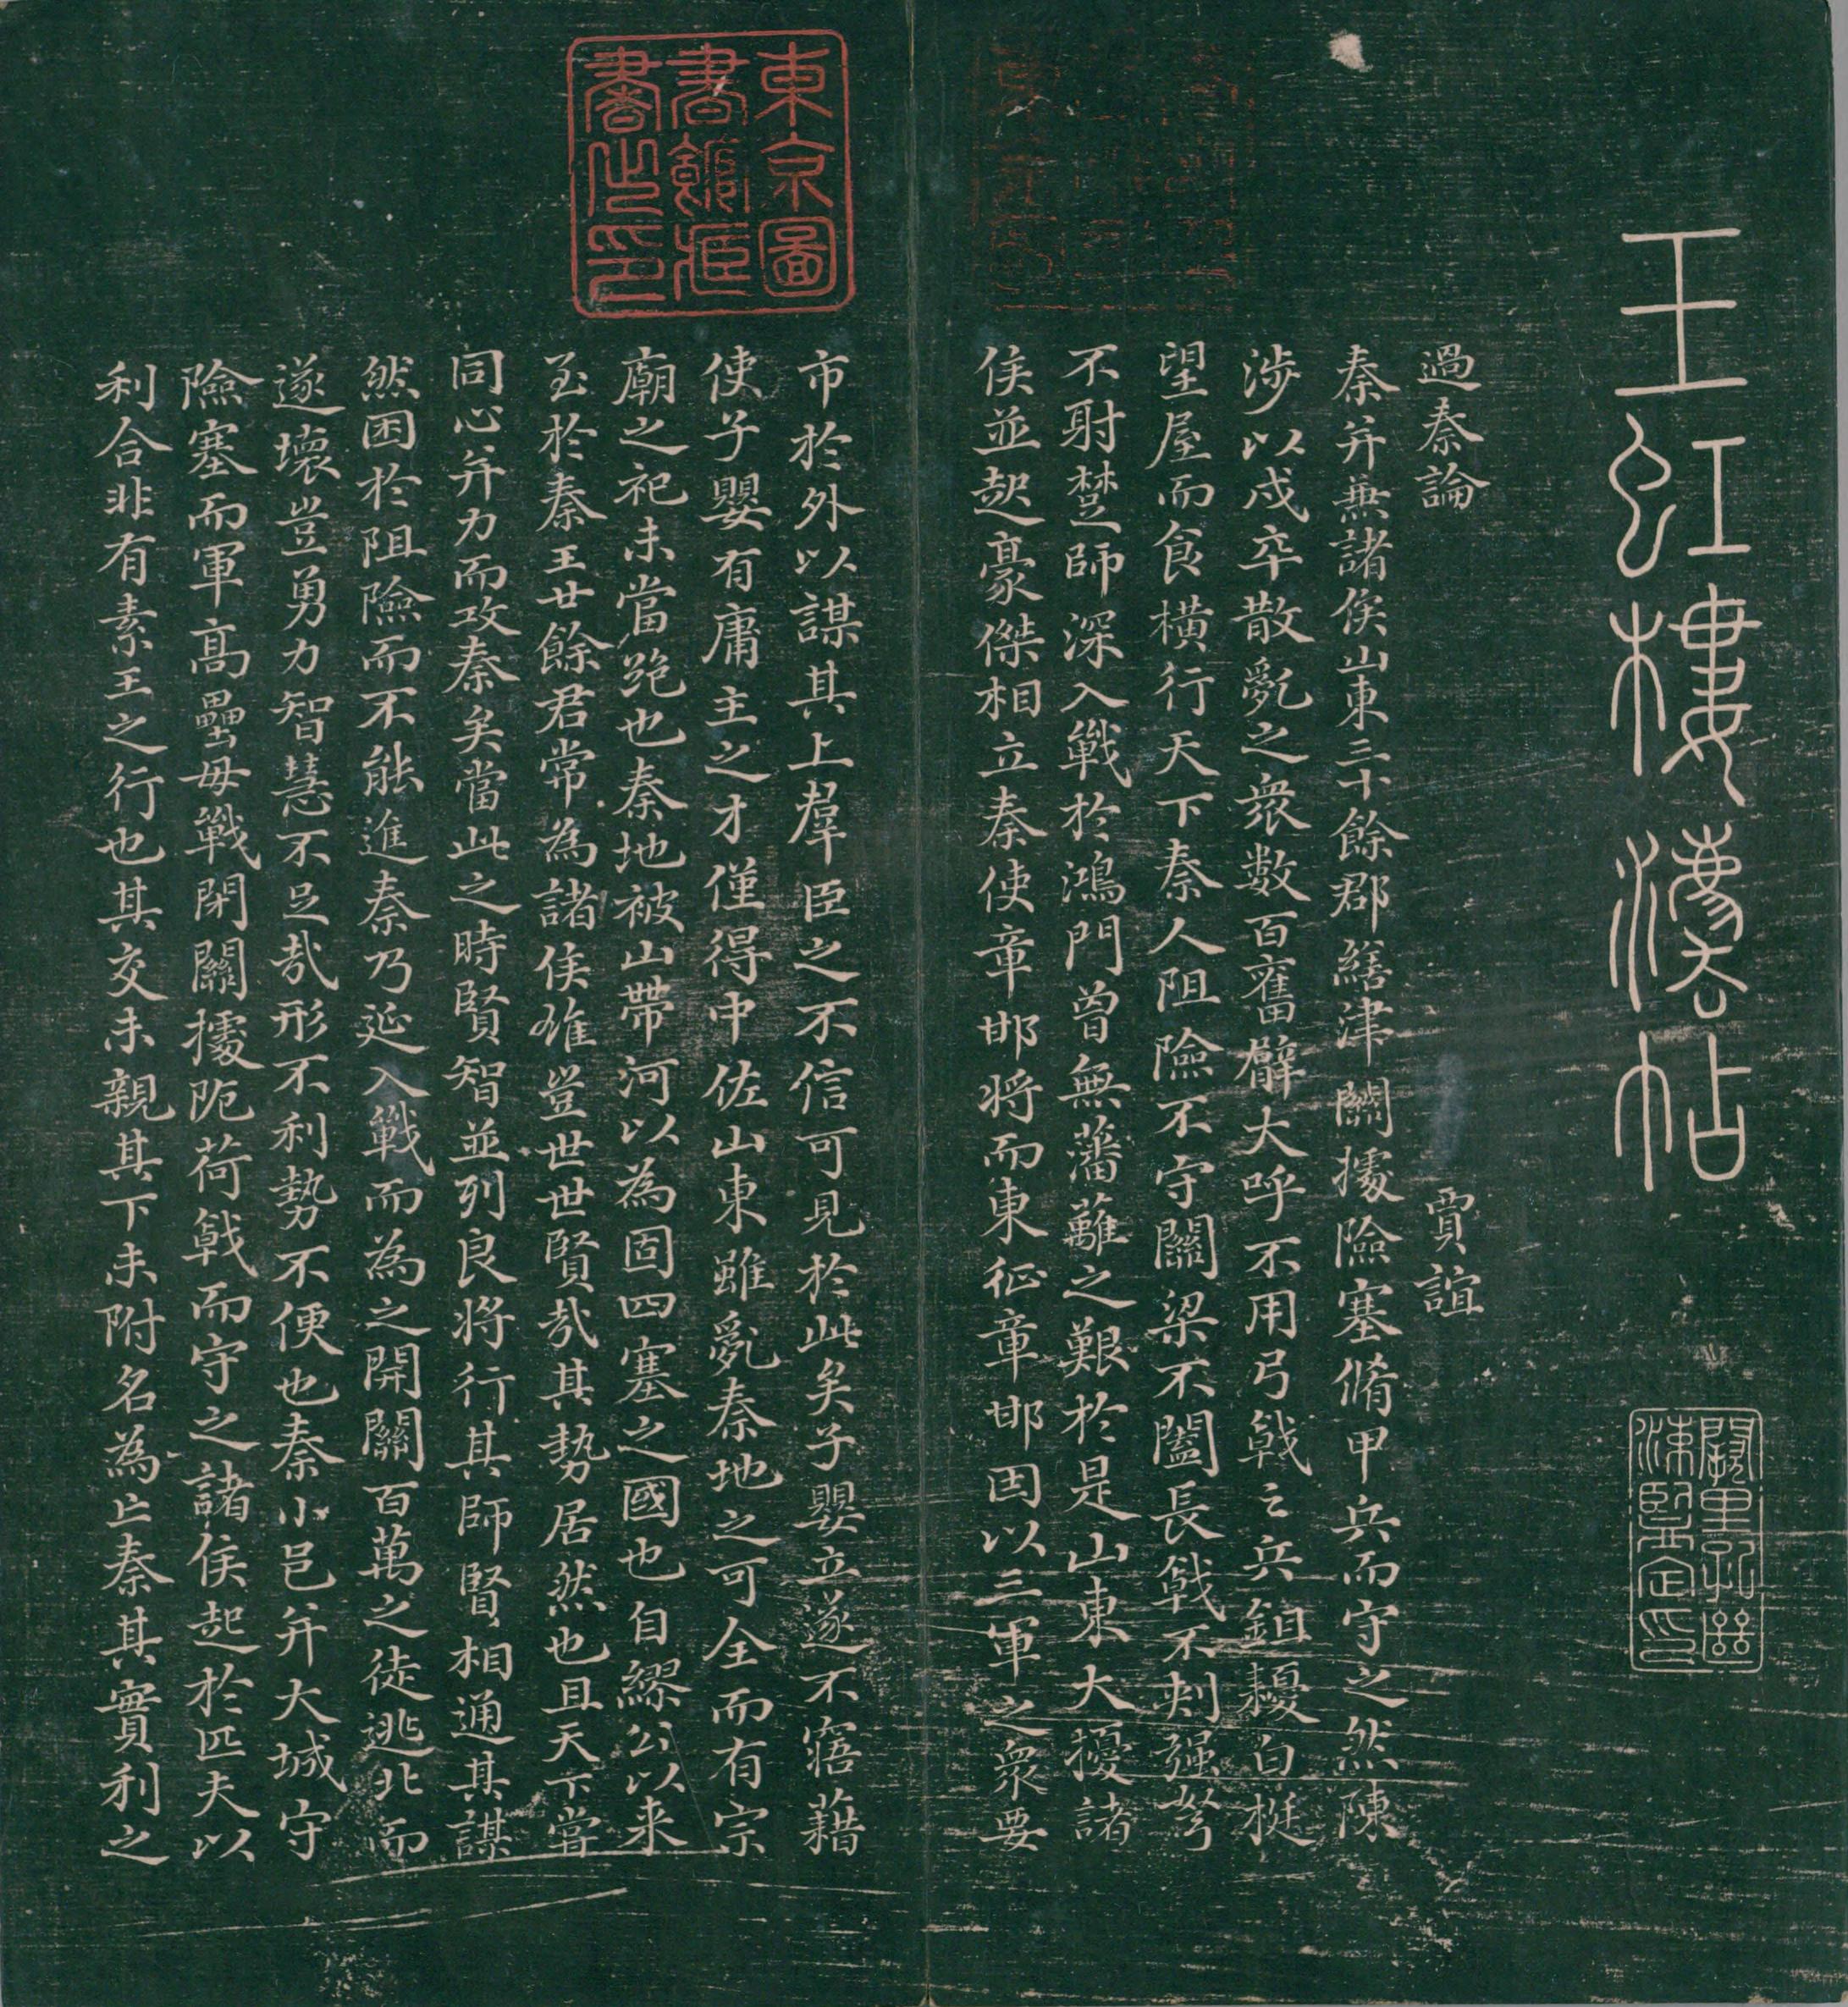 玉虹樓灋帖
闕里孔繼
涑鑒定印
過秦論 賈誼
秦并兼諸侯山東三十餘郡繕津關據險塞脩甲兵而守之然陳
涉以戍卒散亂之衆數百奮臂大呼不用弓戟之兵鉏耰白梃
望屋而食橫行天下秦人阻險不守關梁不闔長戟不刺强弩
不射楚師深入戰於鴻門曾無藩蘺之艱於是山東大擾諸
侯並起豪傑相立秦使章邯将而東征章邯因以三軍之衆要
東京圖
書館臧
書之印
市於外以謀其上羣臣之不信可見於此矣子嬰立遂不寤藉
使子嬰有庸主之才僅得中佐山東雖亂秦地之可全而有宗
廟之祀未當絶也秦地被山帶河以為固四塞之國也自繆公以来
至於秦王廿餘君常為諸侯雄豈世世賢哉其勢居然也且天下嘗
同心并力而攻秦矣當此之時賢智並列良将行其師賢相通其謀
然困於阻險而不能進秦乃延入戰而為之開關百萬之徒逃北而
遂壞豈勇力智慧不足哉形不利勢不便也秦小邑并大城守
險塞而軍高壘毋戰閉關據阨荷戟而守之諸侯起於匹夫以
利合非有素王之行也其交未親其下未附名為亡秦其實利之